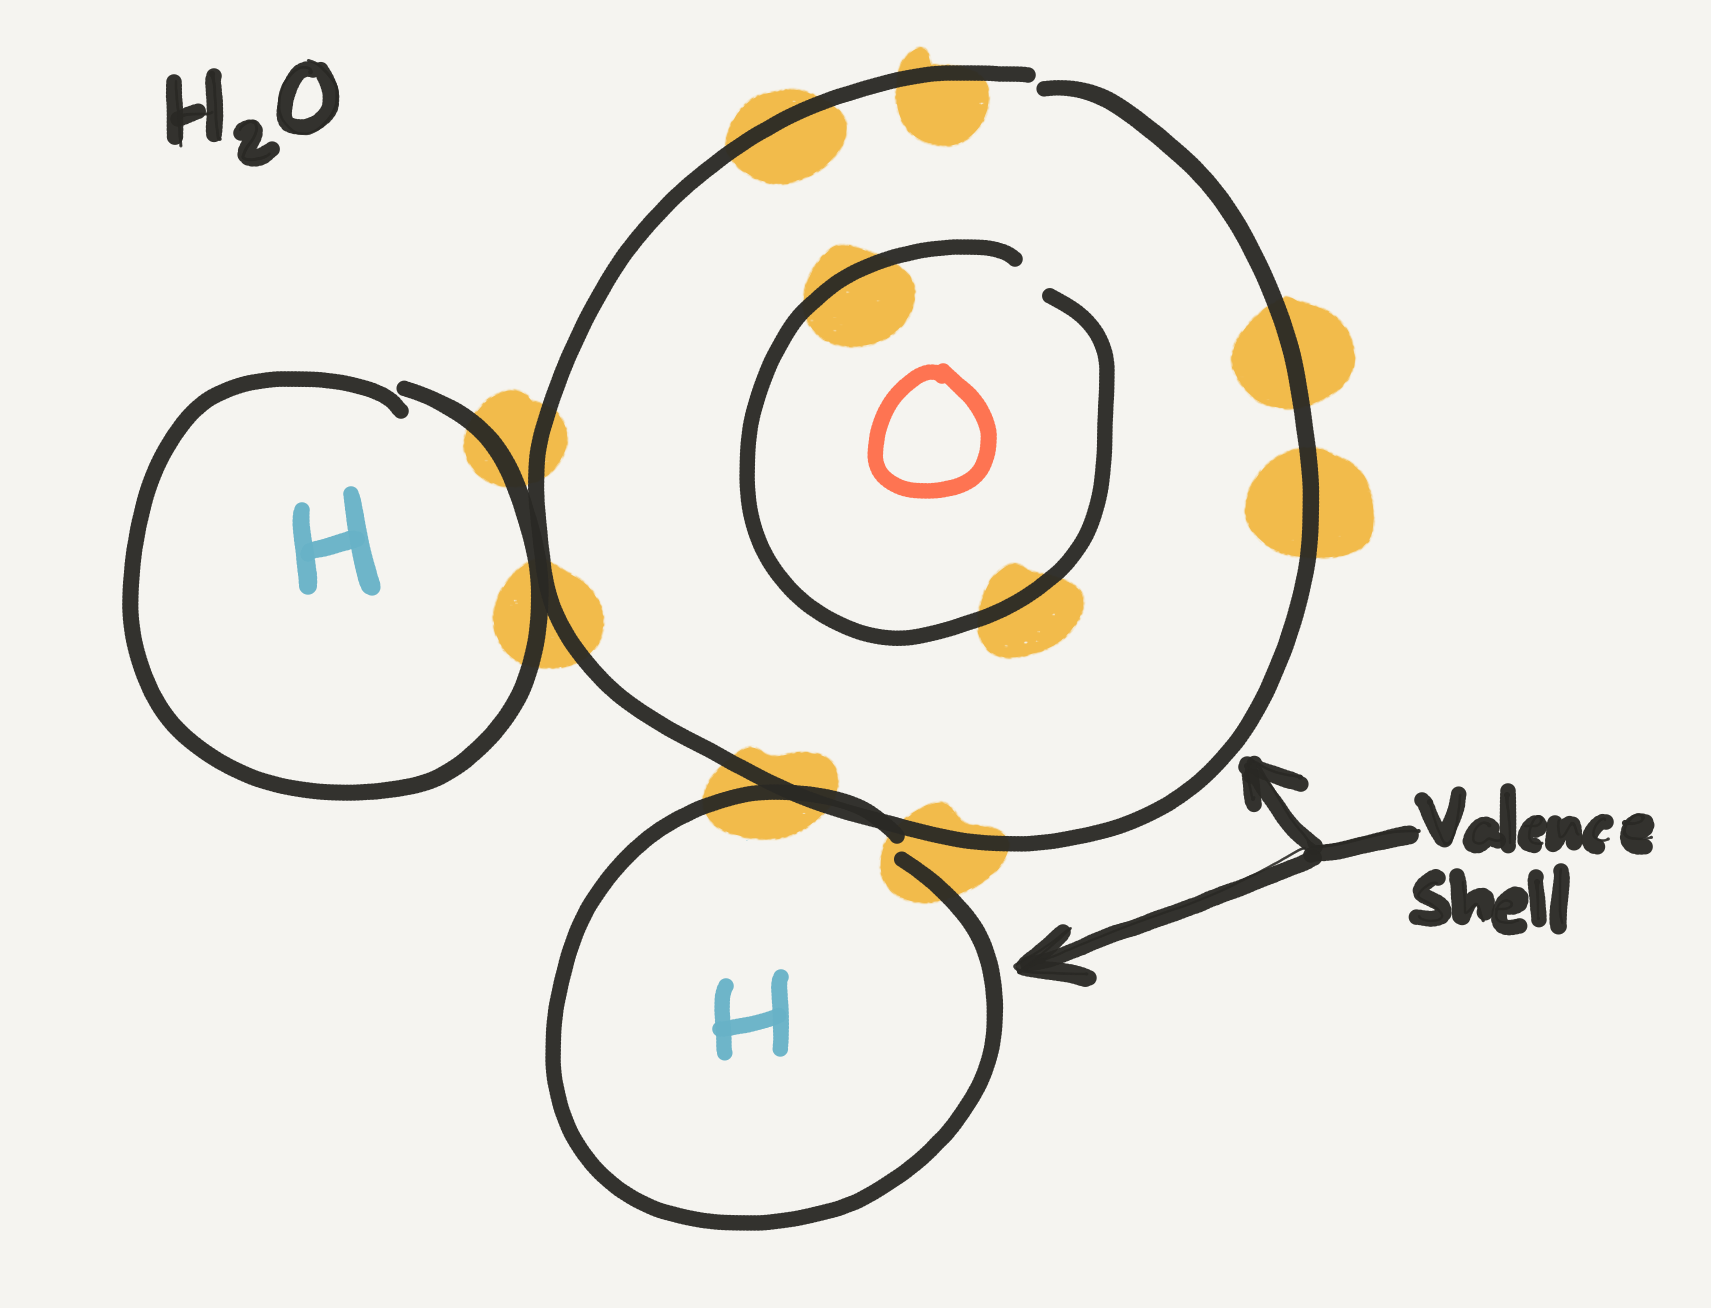 H₂O
O
H
H
Valence
Shell